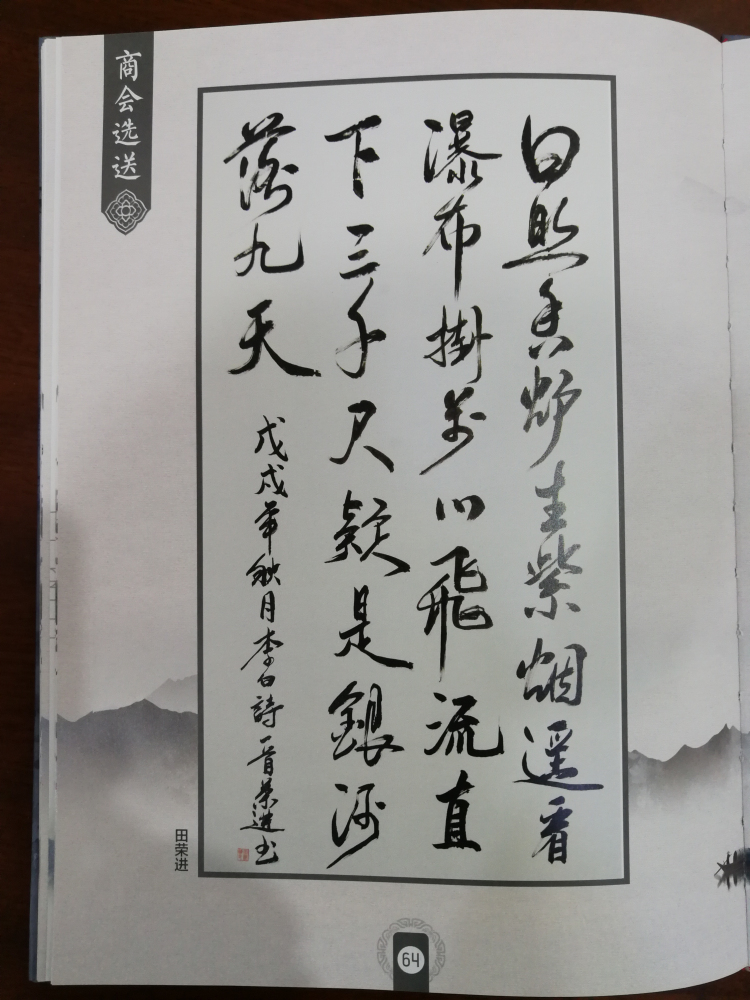 商会选送
日照香炉生紫烟遥看
瀑布掛前川飛流直
下三千尺疑是銀河
落九天
戊戌年秋月李白詩一首荣進书
田荣进
64